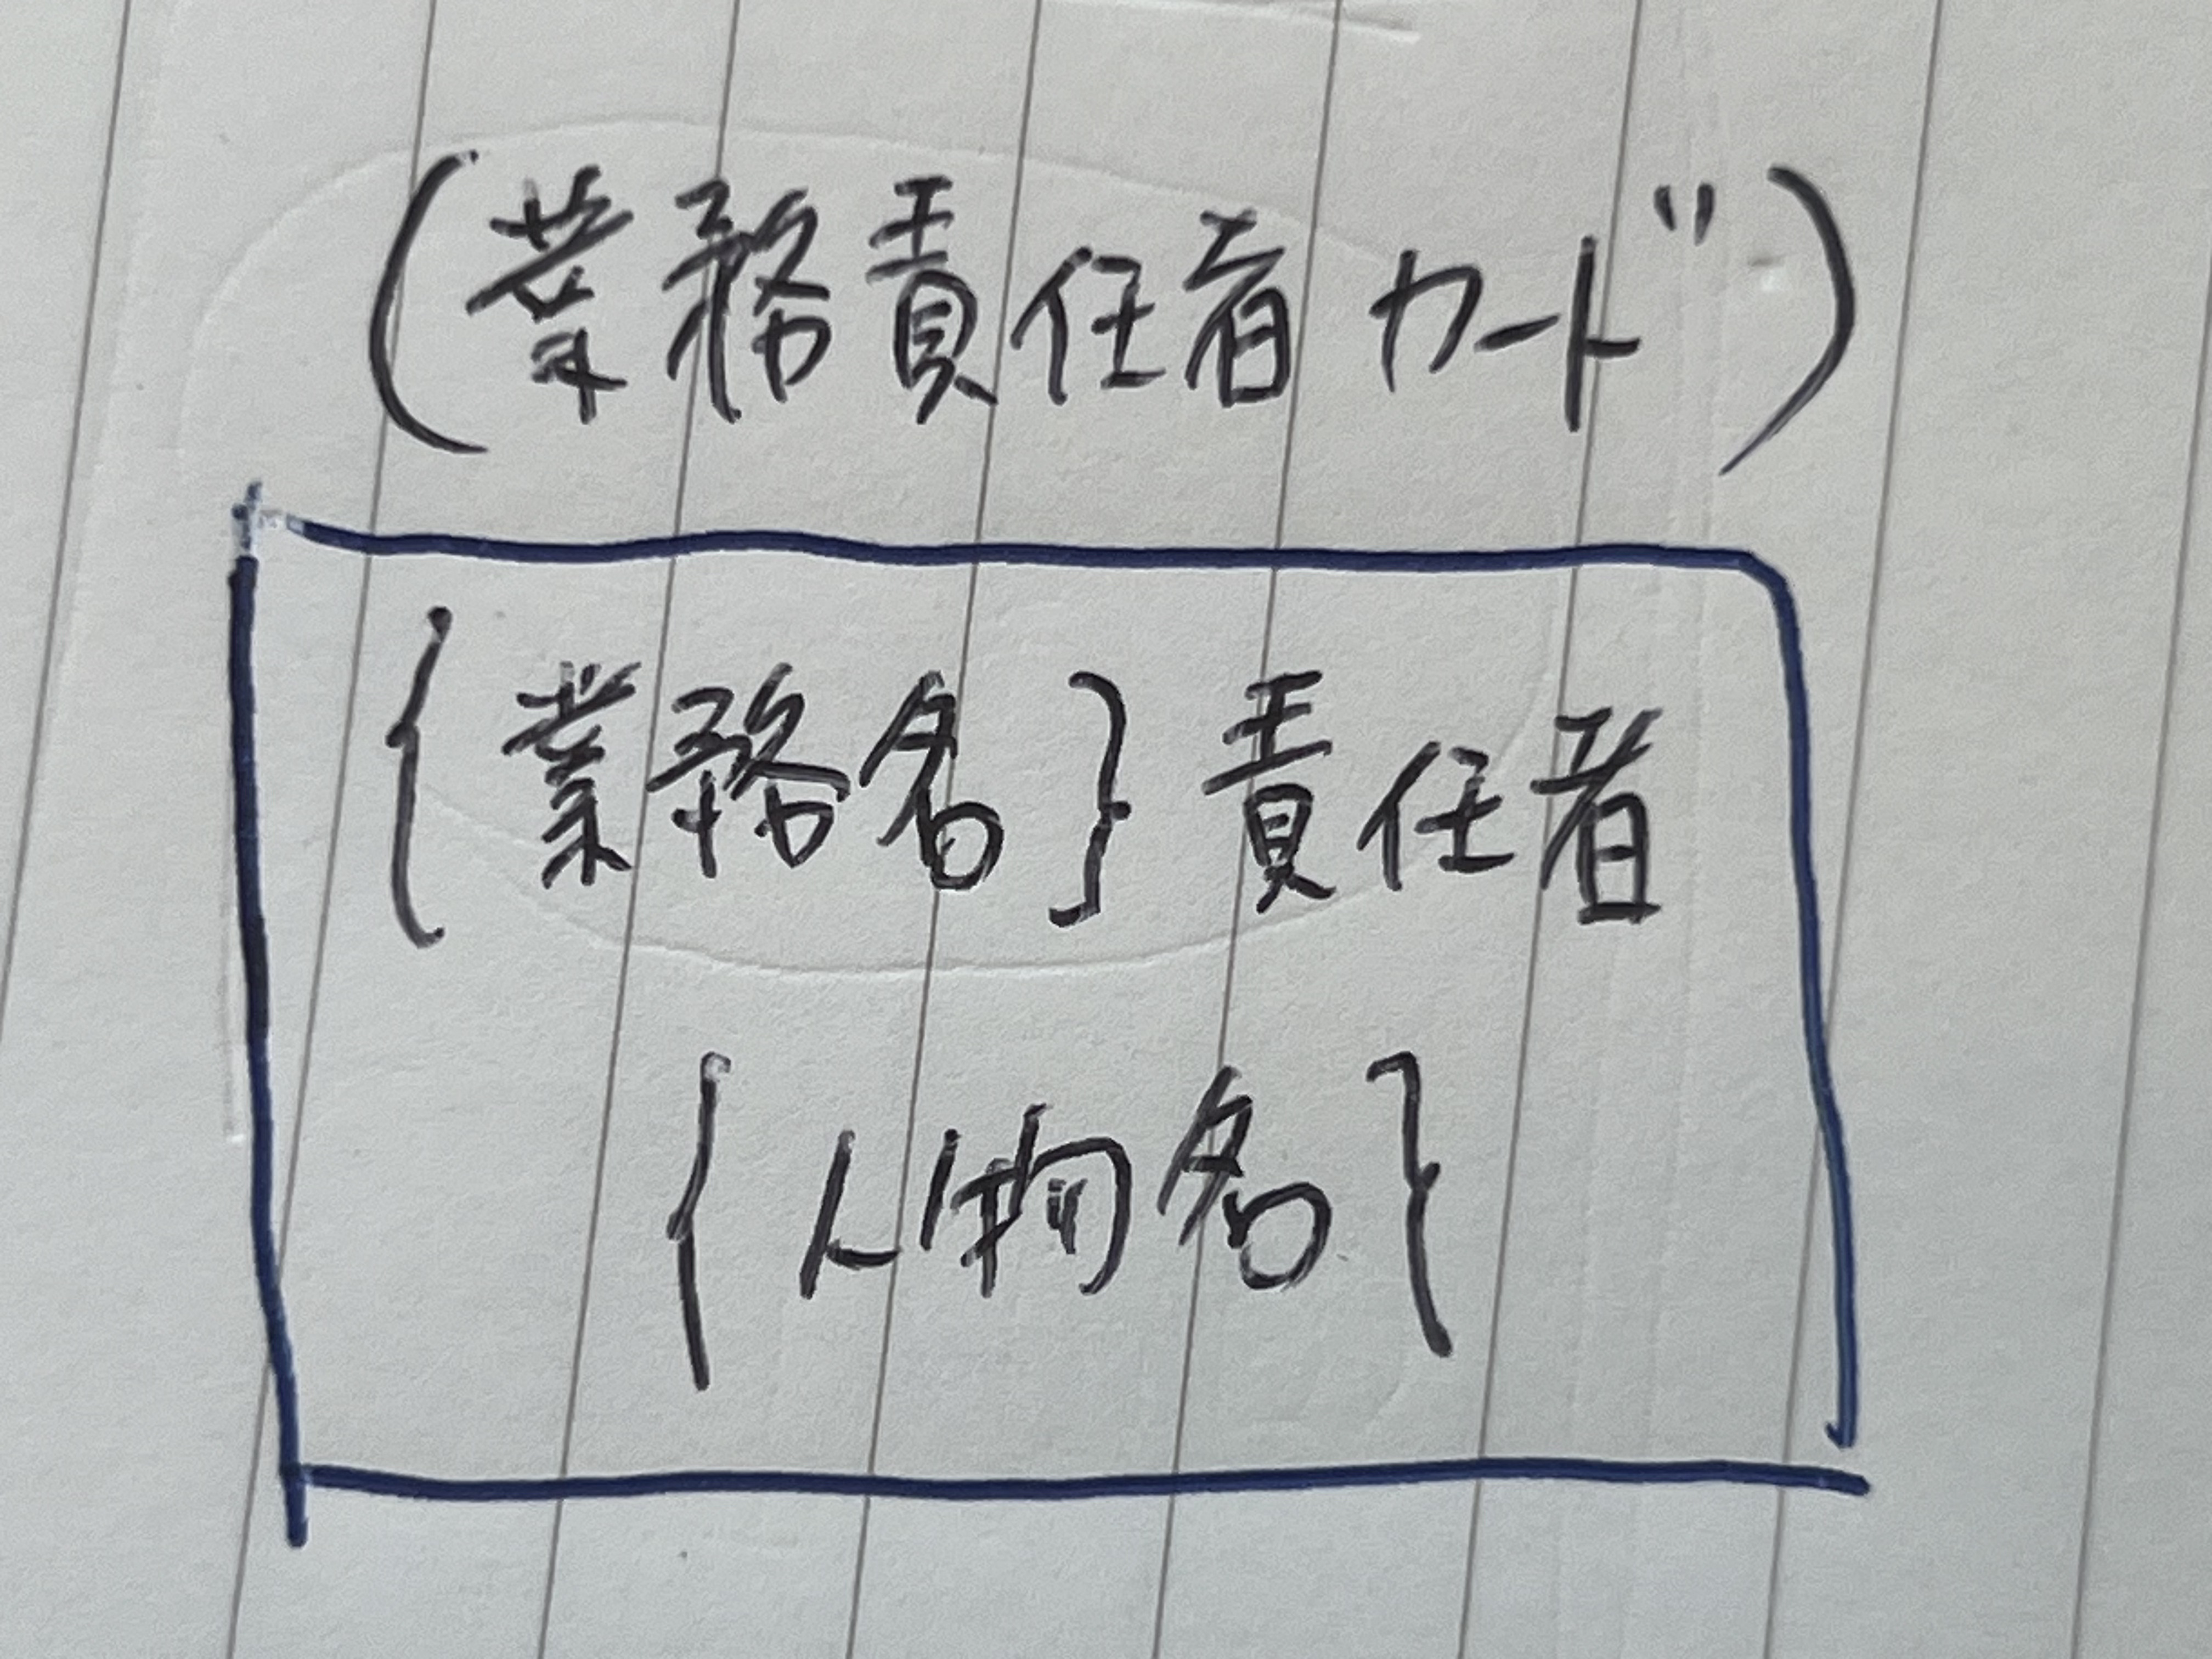 (業務責任者カード)
{業務名}責任者
{人物名}